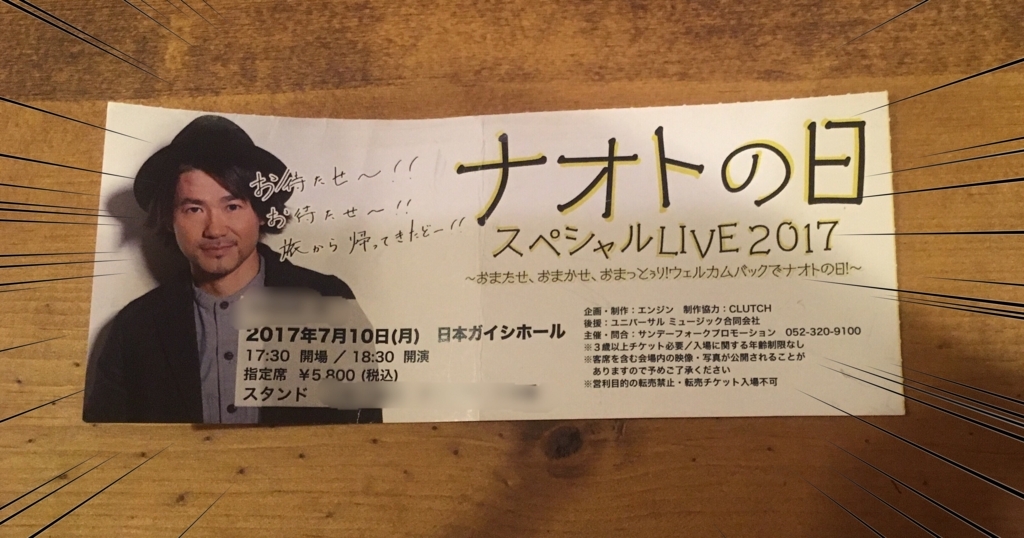 お待たせ〜!!
お待たせ〜!!
旅から帰ってきたどー!!
ナオトの日
スペシャルLIVE 2017
〜おまたせ、おまかせ、おまっとぅり!ウェルカムバックでナオトの日!〜
2017年7月10日(月) 日本ガイシホール
17:30 開場 / 18:30 開演
指定席 ¥5,800 (税込)
スタンド
企画・制作：エンジン 制作協力：CLUTCH
後援：ユニバーサル ミュージック合同会社
主催・問合：サンデーフォークプロモーション 052-320-9100
※3歳以上チケット必要/入場に関する年齢制限なし
※客席を含む会場内の映像・写真が公開されることが
ありますので予めご了承ください
※営利目的の転売禁止・転売チケット入場不可